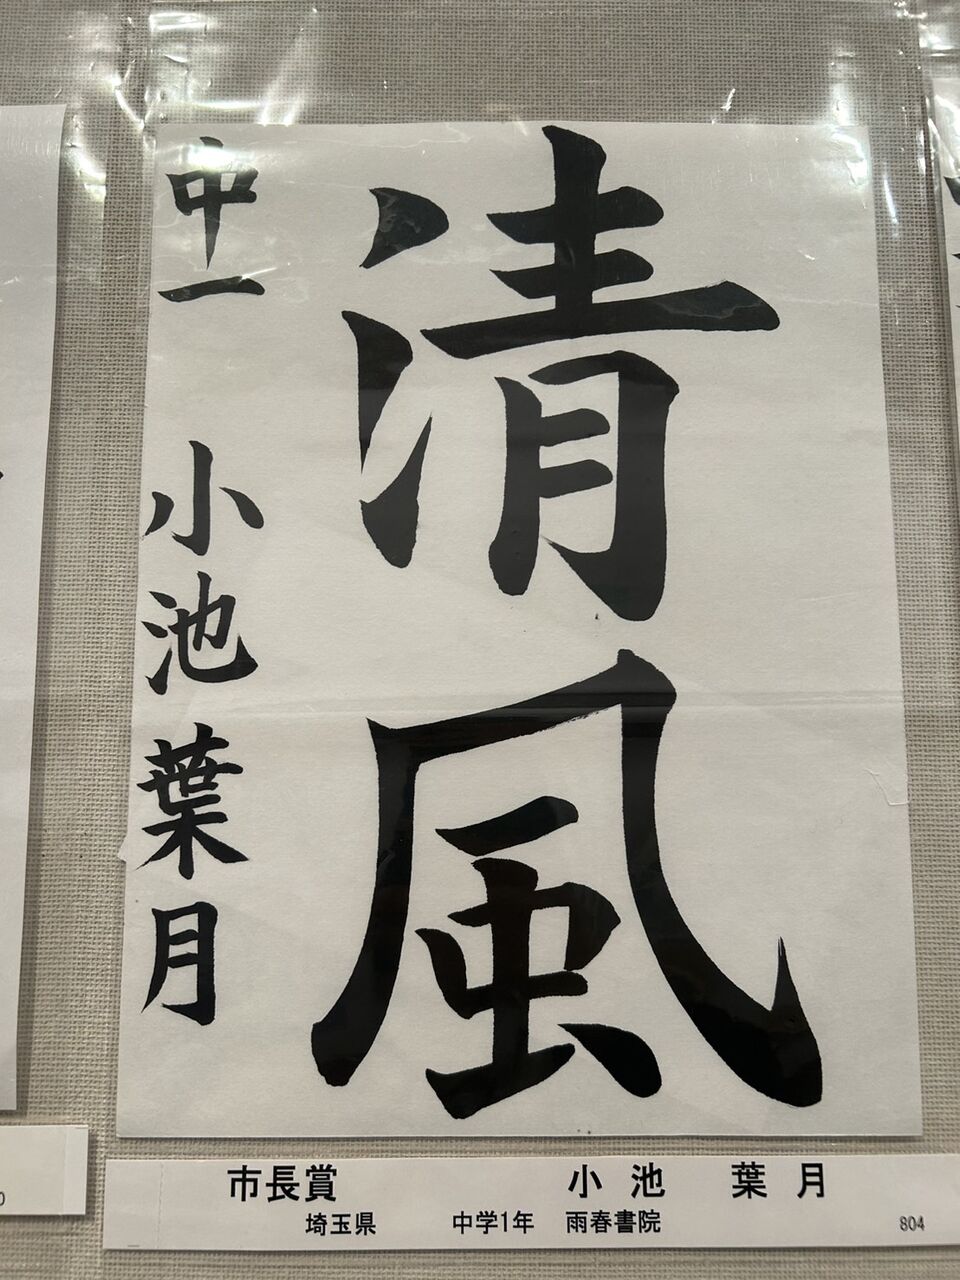 清風
中一 小池葉月
市長賞 小池 葉月
埼玉県 中学1年 雨春書院
804